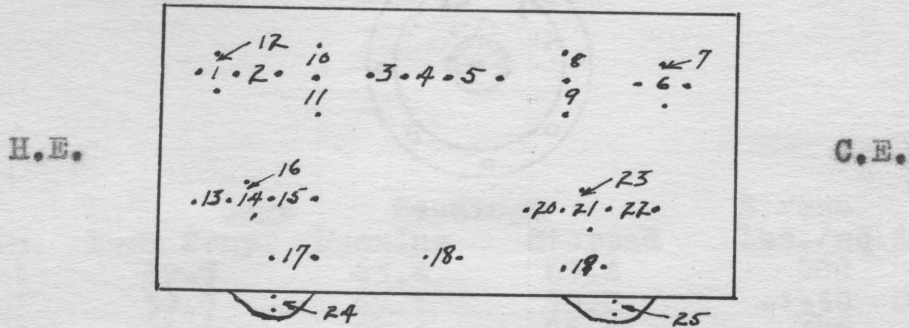 12 10 8 7
1 2 3 4 5 6
11 9
H.E. C.E.
16 23
13 14 15 20 21 22
17 18 19
24 25